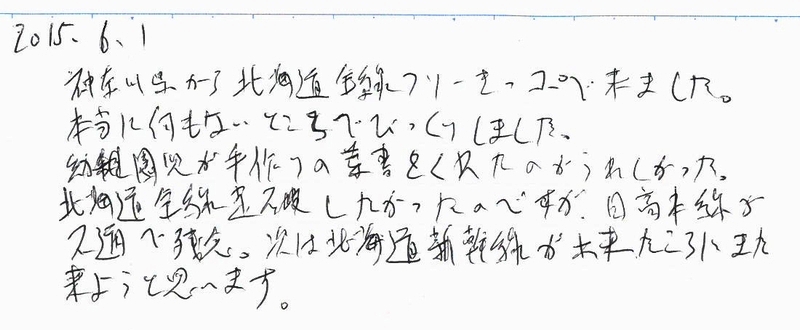 2015.6.1
神奈川県から北海道全線フリーきっぷで来ました。
本当に何もないところでびっくりしました。
幼稚園児が手作りの葉書をくれたのがうれしかった。
北海道全線走破したかったのですが、日高本線が
不通で残念。次は北海道新幹線が出来たころにまた
来ようと思います。